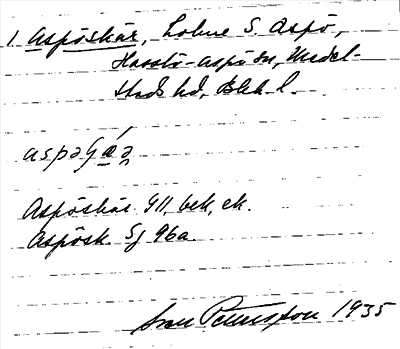 1. Aspöskär, holme S. Aspö,
Hasslö-Aspö sn, Medel-
stads hd, Blek. l.
Aspöskär. GII, bek, ek.
Aspösk. Sj 96a.
Sven Petersson 1935